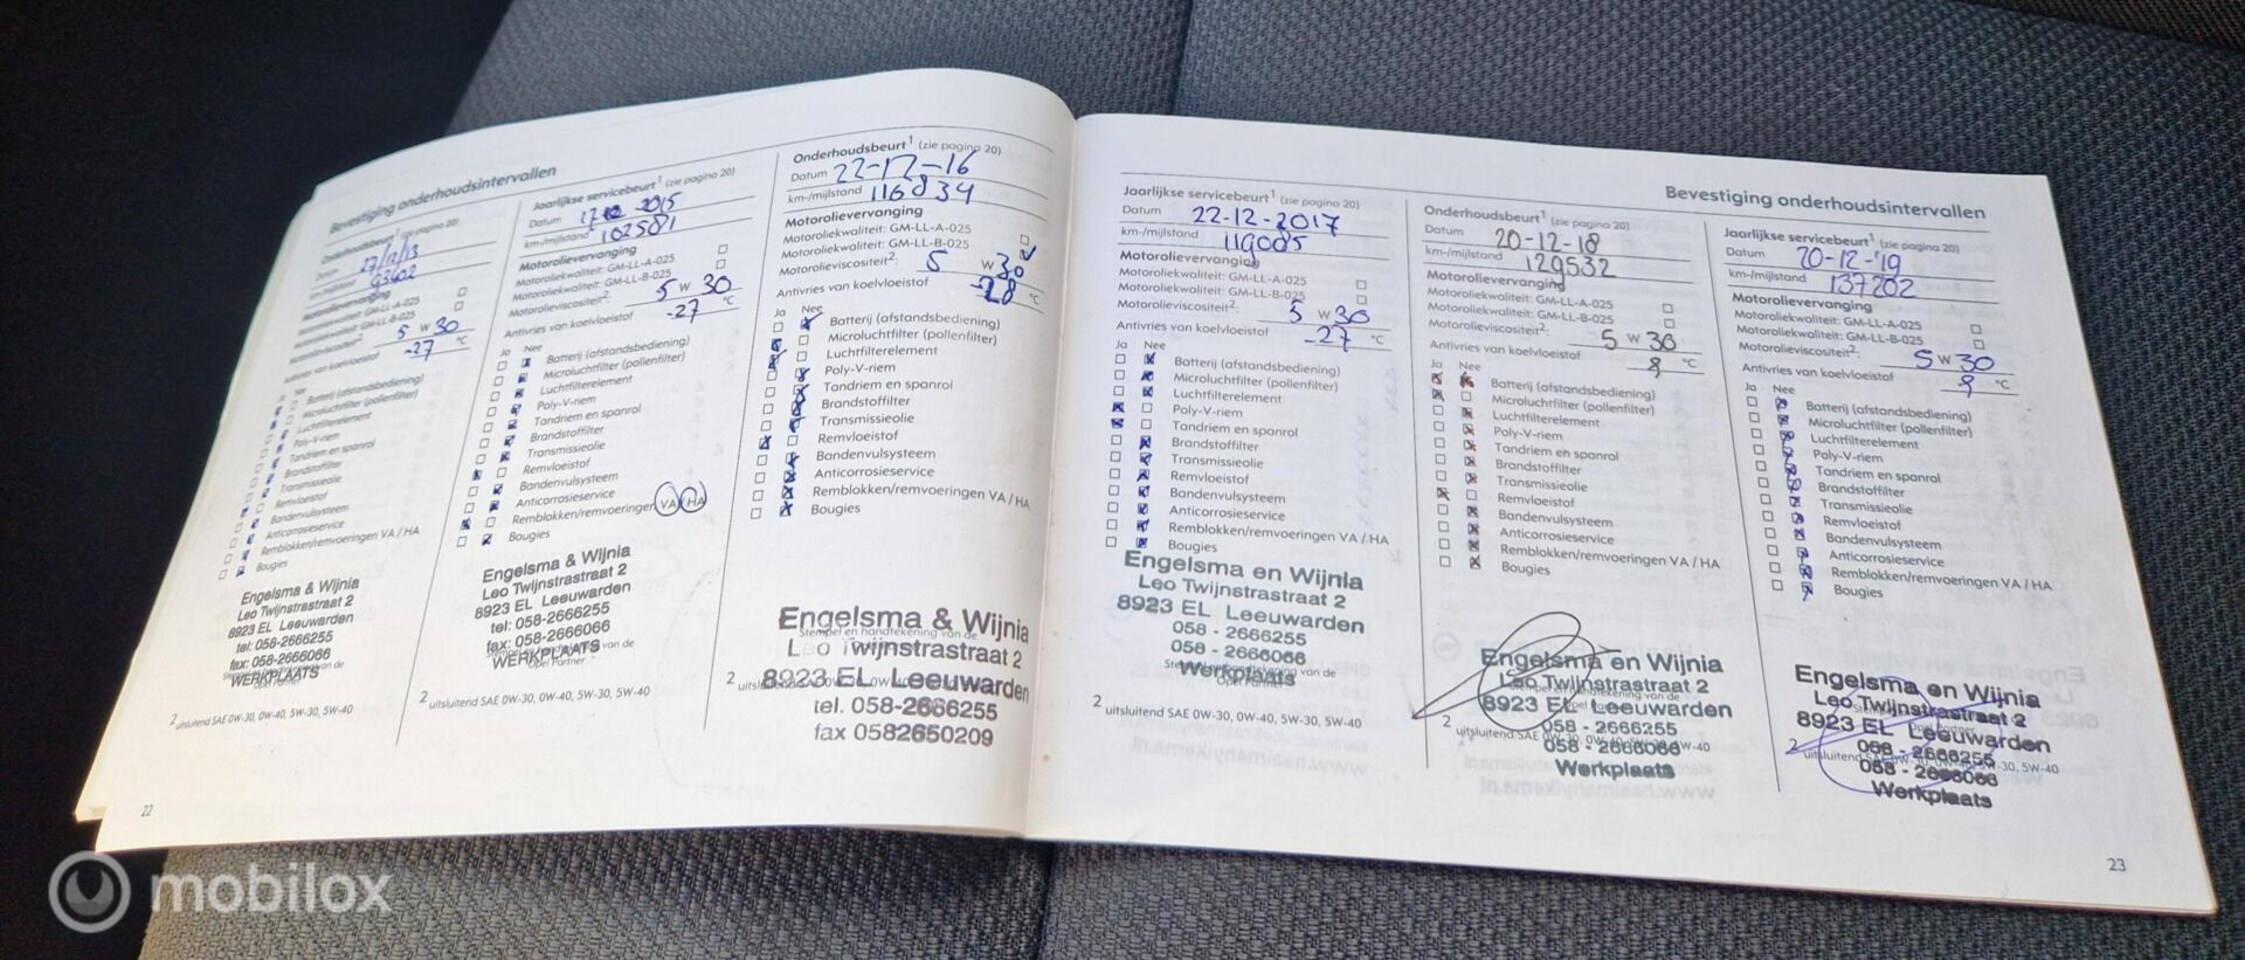 Bevestiging onderhoudsintervallen
Onderhoudsbeurt¹ (zie pagina 20)
27/12/13
km-/mijlstand 93602
Motorolievervanging
Motoroliekwaliteit: GM-LL-A-025
Motoroliekwaliteit: GM-LL-B-025
Motorolieviscositeit²: 5 W 30
Antivries van koelvloeistof -27 °C
Batterij (afstandsbediening)
Microluchtfilter (pollenfilter)
Luchtfilterelement
Poly-V-riem
Tandriem en spanrol
Brandstoffilter
Transmissieolie
Remvloeistof
Bandenvulsysteem
Anticorrosieservice
Remblokken/remvoeringen VA / HA
Bougies
Engelsma & Wijnia
Leo Twijnstrastraat 2
8923 EL Leeuwarden
tel: 058-2666255
fax: 058-2666066
WERKPLAATS
² uitsluitend SAE 0W-30, 0W-40, 5W-30, 5W-40
22
Jaarlijkse servicebeurt¹ (zie pagina 20)
Datum 2015
km-/mijlstand 102581
Motorolievervanging
Motoroliekwaliteit: GM-LL-A-025
Motoroliekwaliteit: GM-LL-B-025
Motorolieviscositeit²: 5 W 30
Antivries van koelvloeistof -27 °C
Ja Nee
Batterij (afstandsbediening)
Microluchtfilter (pollenfilter)
Luchtfilterelement
Poly-V-riem
Tandriem en spanrol
Brandstoffilter
Transmissieolie
Remvloeistof
Bandenvulsysteem
Anticorrosieservice
Remblokken/remvoeringen VA / HA
Bougies
Engelsma & Wijnia
Leo Twijnstrastraat 2
8923 EL Leeuwarden
tel: 058-2666255
fax: 058-2666066
WERKPLAATS
Opel Partner
² uitsluitend SAE 0W-30, 0W-40, 5W-30, 5W-40
Onderhoudsbeurt¹ (zie pagina 20)
Datum 22-12-16
km-/mijlstand 116834
Motorolievervanging
Motoroliekwaliteit: GM-LL-A-025
Motoroliekwaliteit: GM-LL-B-025
Motorolieviscositeit²: 5 W 30
Antivries van koelvloeistof -28 °C
Ja Nee
Batterij (afstandsbediening)
Microluchtfilter (pollenfilter)
Luchtfilterelement
Poly-V-riem
Tandriem en spanrol
Brandstoffilter
Transmissieolie
Remvloeistof
Bandenvulsysteem
Anticorrosieservice
Remblokken/remvoeringen VA / HA
Bougies
Engelsma & Wijnia
Stempel en handtekening van de
Leo Twijnstrastraat 2
8923 EL Leeuwarden
tel. 058-2666255
fax 0582650209
Jaarlijkse servicebeurt¹ (zie pagina 20)
Datum 22-12-2017
km-/mijlstand 119085
Motorolievervanging
Motoroliekwaliteit: GM-LL-A-025
Motoroliekwaliteit: GM-LL-B-025
Motorolieviscositeit²: 5 W 30
Antivries van koelvloeistof -27 °C
Ja Nee
Batterij (afstandsbediening)
Microluchtfilter (pollenfilter)
Luchtfilterelement
Poly-V-riem
Tandriem en spanrol
Brandstoffilter
Transmissieolie
Remvloeistof
Bandenvulsysteem
Anticorrosieservice
Remblokken/remvoeringen VA / HA
Bougies
Engelsma en Wijnia
Leo Twijnstrastraat 2
8923 EL Leeuwarden
058 - 2666255
058 - 2666066
Werkplaats
² uitsluitend SAE 0W-30, 0W-40, 5W-30, 5W-40
Onderhoudsbeurt¹ (zie pagina 20)
Datum 20-12-18
km-/mijlstand 129532
Motorolievervanging
Motoroliekwaliteit: GM-LL-A-025
Motoroliekwaliteit: GM-LL-B-025
Motorolieviscositeit²: 5 W 30
Antivries van koelvloeistof 8 °C
Ja Nee
Batterij (afstandsbediening)
Microluchtfilter (pollenfilter)
Luchtfilterelement
Poly-V-riem
Tandriem en spanrol
Brandstoffilter
Transmissieolie
Remvloeistof
Bandenvulsysteem
Anticorrosieservice
Remblokken/remvoeringen VA / HA
Bougies
Engelsma en Wijnia
Leo Twijnstrastraat 2
8923 EL Leeuwarden
058 - 2666255
058 - 2666066
Werkplaats
Bevestiging onderhoudsintervallen
Jaarlijkse servicebeurt¹ (zie pagina 20)
Datum 20-12-'19
km-/mijlstand 137202
Motorolievervanging
Motoroliekwaliteit: GM-LL-A-025
Motoroliekwaliteit: GM-LL-B-025
Motorolieviscositeit²: 5 W 30
Antivries van koelvloeistof °C
Ja Nee
Batterij (afstandsbediening)
Microluchtfilter (pollenfilter)
Luchtfilterelement
Poly-V-riem
Tandriem en spanrol
Brandstoffilter
Transmissieolie
Remvloeistof
Bandenvulsysteem
Anticorrosieservice
Remblokken/remvoeringen VA / HA
Bougies
Engelsma en Wijnia
Leo Twijnstrastraat 2
8923 EL Leeuwarden
058 - 2666255
058 - 2666066
Werkplaats
23
mobilox